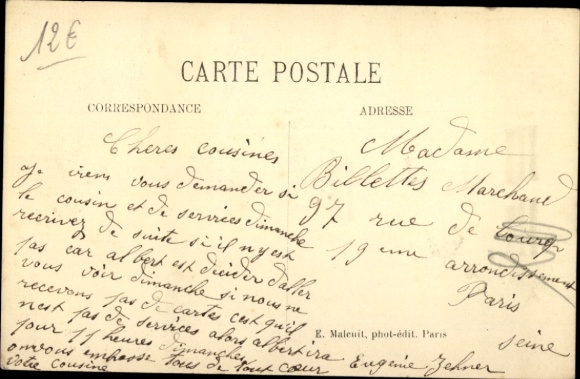 12€
CARTE POSTALE
CORRESPONDANCE
ADRESSE
Cheres cousines
je viens vous demander si
le cousin et de services dimanche
recrivez de suite si il n y est
pas car albert est decider d'aller
vous voir dimanche si nous ne
recevons pas de cartes c'est qu'il
n'est pas de services alors albert ira
pour 11 heures dimanches
on vous embrasse tous de tout cœur
votre cousine
Eugenie Zehner
Madame
Billettes Marchand
97 rue de
19 eme arrondissement
Paris
seine
E. Malcuit, phot-édit. Paris